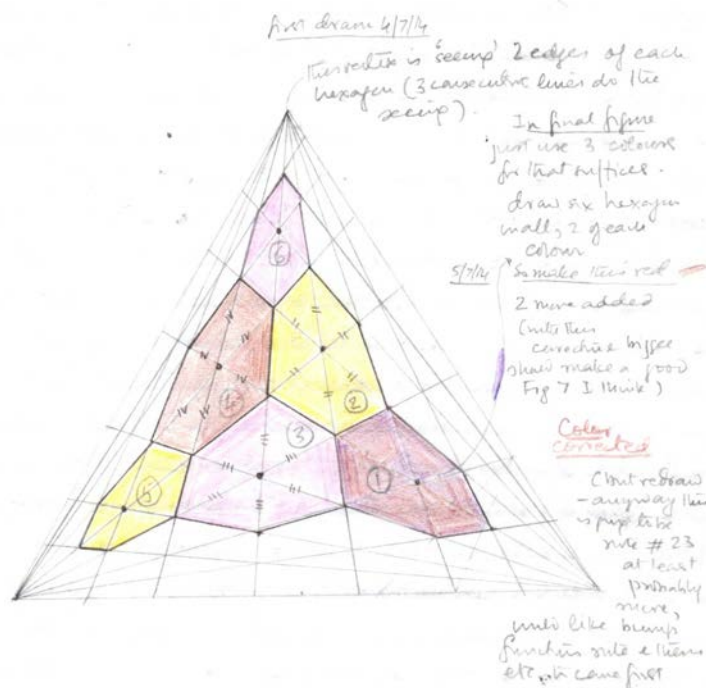 first drawn 4/7/14
this vertex is 'seeing' 2 edges of each
hexagon (3 consecutive lines do the
seeing).
In final figure
just use 3 colours
for that suffices.
draw six hexagon
in all, 2 of each
colour
5/7/14 So make this red
2 more added
(note this
bigger
should make a good
Fig 7 I think)
Color
corrected
(but redraw
- anyway this
is like
note # 23
at least
probably
more,
until like bump
function note
etc. came first
6
4
2
3
1
5